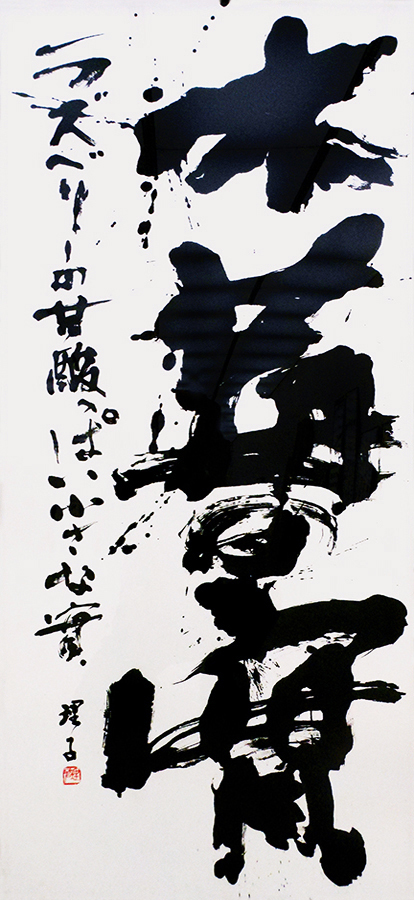 木苺の實
ラズベリーの甘酸っぱい小さな實